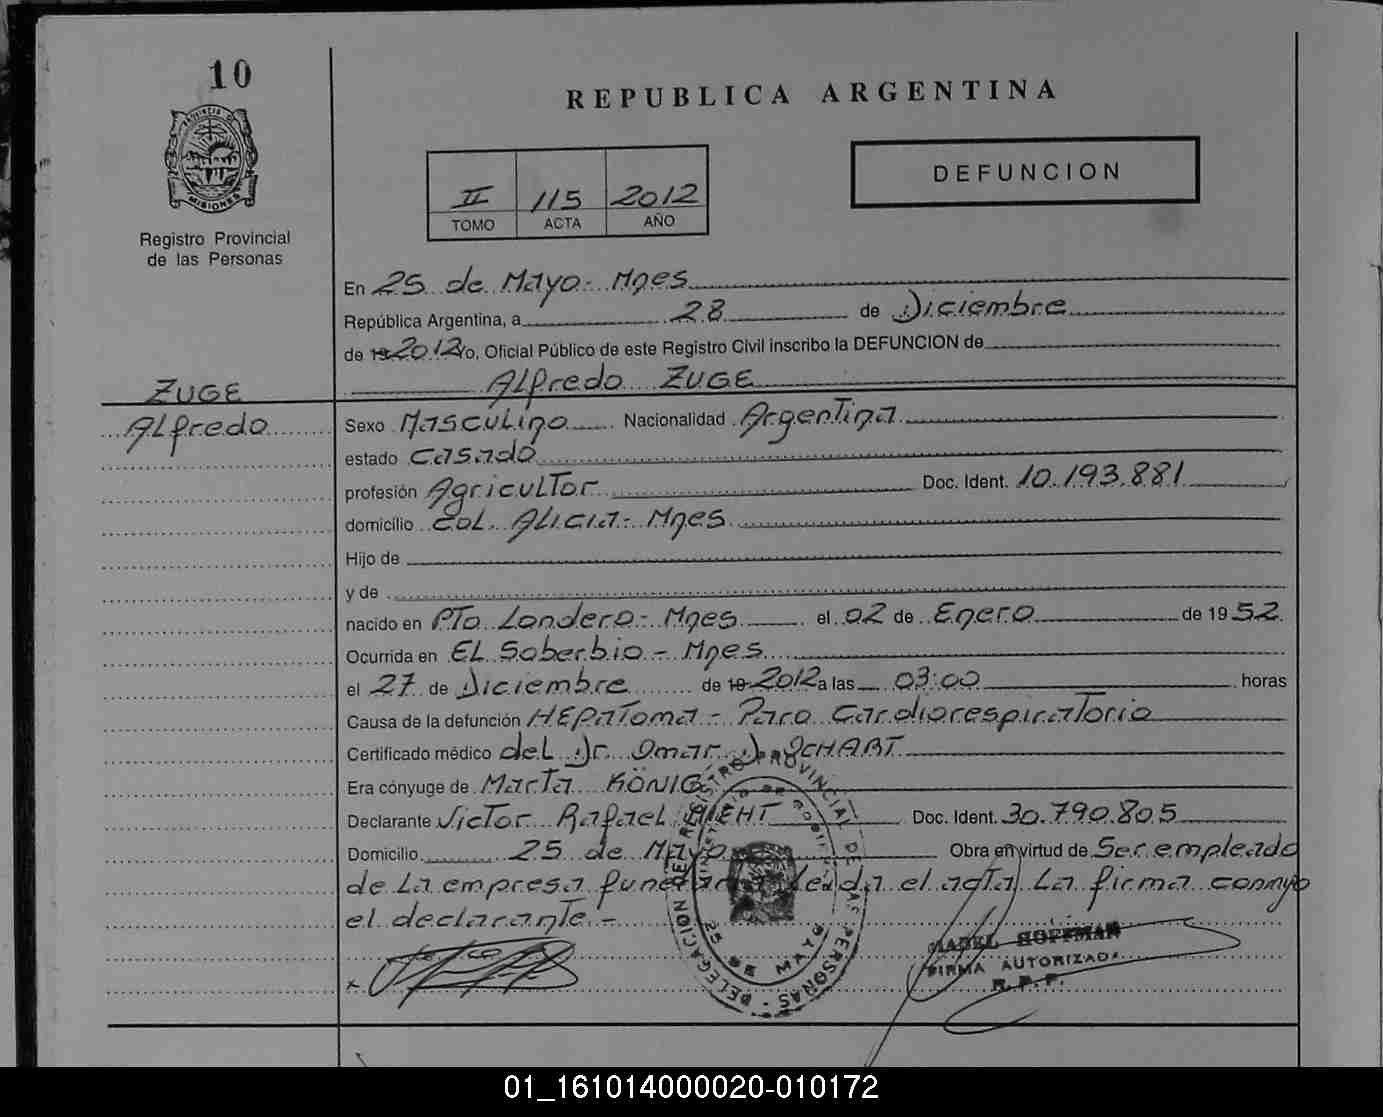 10
REPUBLICA ARGENTINA
PROVINCIA DE
MISIONES
DEFUNCION
II 115 2012
TOMO ACTA AÑO
Registro Provincial
de las Personas
En 25 de Mayo - Mnes
República Argentina, a 28 de Diciembre
de 19 2012 Yo, Oficial Público de este Registro Civil inscribo la DEFUNCION de
Alfredo ZUGE
ZUGE
Alfredo
Sexo Masculino Nacionalidad Argentina
estado Casado
profesión Agricultor Doc. Ident. 10.193.881
domicilio Col. Alicia - Mnes
Hijo de
y de
nacido en Pto Londero - Mnes el 02 de Enero de 1952
Ocurrida en El Soberbio - Mnes
el 27 de Diciembre de 19 2012 a las 03:00 horas
Causa de la defunción HEPAToma - Paro Cardiorespiratorio
Certificado médico del Dr. Omar D. OCHART
Era cónyuge de Marta KÖNIG
Declarante Victor Rafael Doc. Ident. 30.790.805
Domicilio 25 de Mayo Obra en virtud de Ser empleado
de la empresa leída el acta la firma conmigo
el declarante.-
DELEGACION DEL REGISTRO PROVINCIAL DE LAS PERSONAS
25 DE MAYO
MABEL HOFFMAN
FIRMA AUTORIZADA
R. P. P.
01_161014000020-010172